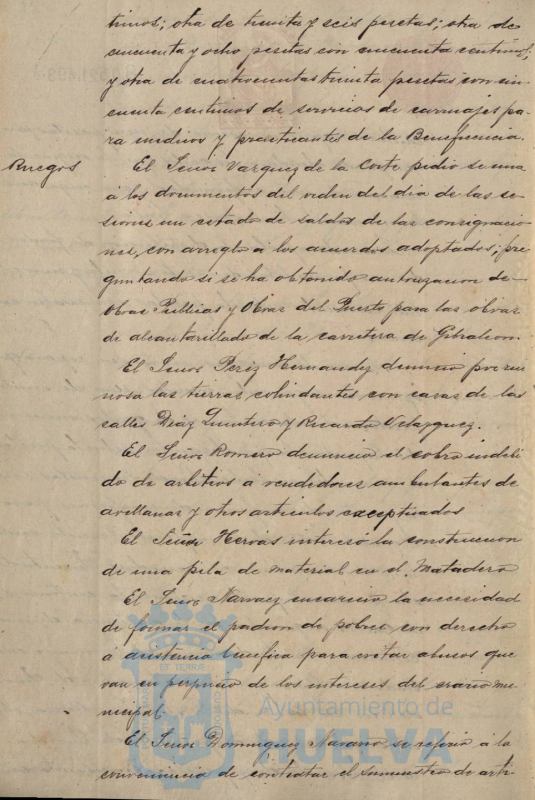 timos; otra de treinta y seis pesetas; otra de
cincuenta y ocho pesetas con cincuenta centimos;
y otra de cuatrocientas treinta pesetas con cin-
cuenta centimos de servicios de carruajes pa-
ra medicos y practicantes de la Beneficencia.
Ruegos
El Señor Vazquez de la Corte pidio se una
á los documentos del orden del dia de las se-
siones un estado de saldos de las consignacio-
nes, con arreglo á los acuerdos adoptados; pre-
guntando si se ha obtenido autorizacion de
Obras Publicas y Obras del Puerto para las obras
de alcantarillado de la carretera de Gibraleon.
El Señor Perez Hernandez denuncio por rui-
nosa las tierras colindantes con casas de las
calles Diaz Quintero y Ricardo Velazquez.
El Señor Romero denuncio el cobro indebi-
do de arbitrios á vendedores ambulantes de
avellanas y otros articulos exceptuados
El Señor Hervás interesó la construccion
de una pila de material en el Matadero
El Señor Narvaez encarecio la necesidad
de formar el padron de pobres con derecho
a asistencia benefica para evitar abusos que
van en perjuicio de los intereses del erario mu-
nicipal.
El Señor Dominguez Naranjo se refirio á la
conveniencia de contratar el suministro de arti-
Ayuntamiento de
HUELVA